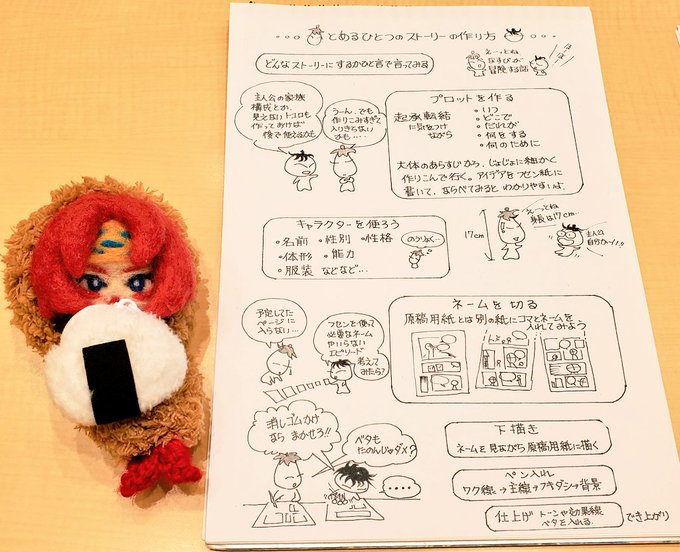 とあるひとつのストーリーの作り方
どんなストーリーにするかひと言で言ってみる
えーっとね
なすびが
冒険する話
ほほー
主人公の家族
構成とか、
見えないトコロも
作っておけば
後で使えるかも
うーん、でも
作りこみすぎて
入りきらない
かも…
プロットを作る
起承転結
に気をつけ
ながら
・いつ
・どこで
・だれが
・何をする
・何のために
大体のあらすじから、じょじょに細かく
作りこんで行く。アイデアをフセン紙に
書いて、ならべてみるとわかりやすいよ。
キャラクターを使ろう
・名前 ・性別 ・性格
・体形 ・能力
・服装 などなど…
のうりょく…
17cm
えーっとね
身長は17cm…
主人公
自分かーい!!
予定してた
ページに
入らない…
フセンを使って
必要なネーム
やいらない
エピソード
考えて
みたら?
ネームを切る
原稿用紙とは別の紙にコマとネームを
入れてみよう!
消しゴムかけ
なら まかせろ!!
ベタも
たのんじゃダメ?
・・・・
下描き
ネームを見ながら原稿用紙に描く
ペン入れ
ワク線→主線→フキダシ→背景
仕上げ トーンや効果線
ベタを入れる
でき上がり